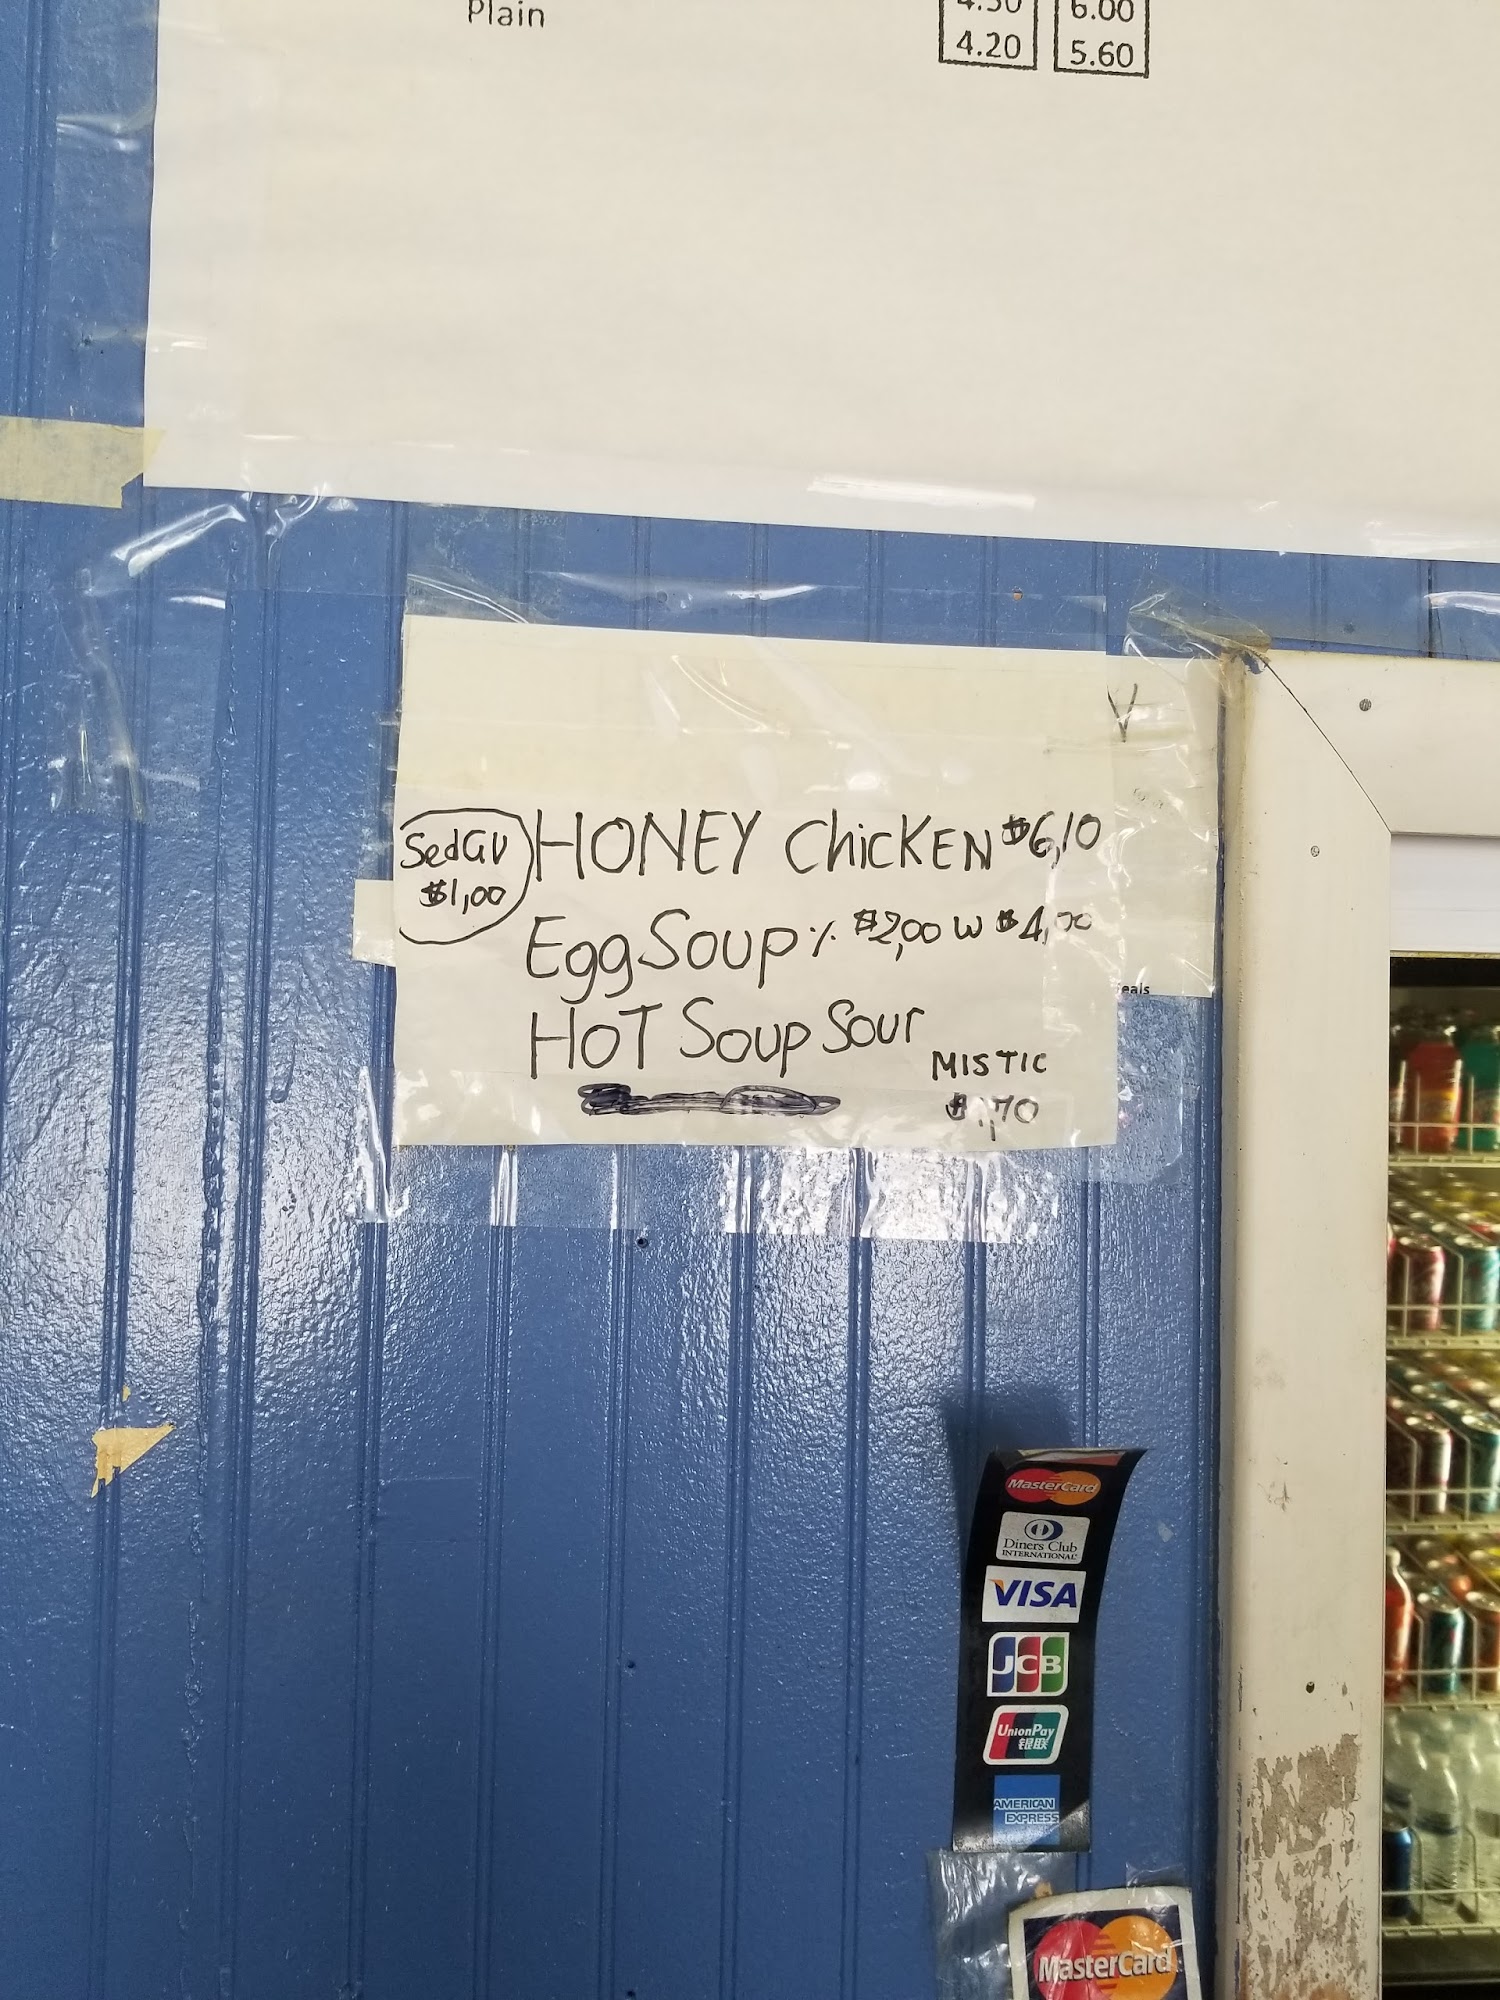 Plain
6.00
4.20 5.60
V
SedGV
$1,00
HONEY ChicKEN $6,10
Egg Soup ⁒ $2,00 W $4,00
HOT Soup Sour
MISTIC
eals
MasterCard
Diners Club
INTERNATIONAL
VISA
JCB
UnionPay
银联
AMERICAN
EXPRESS
MasterCard